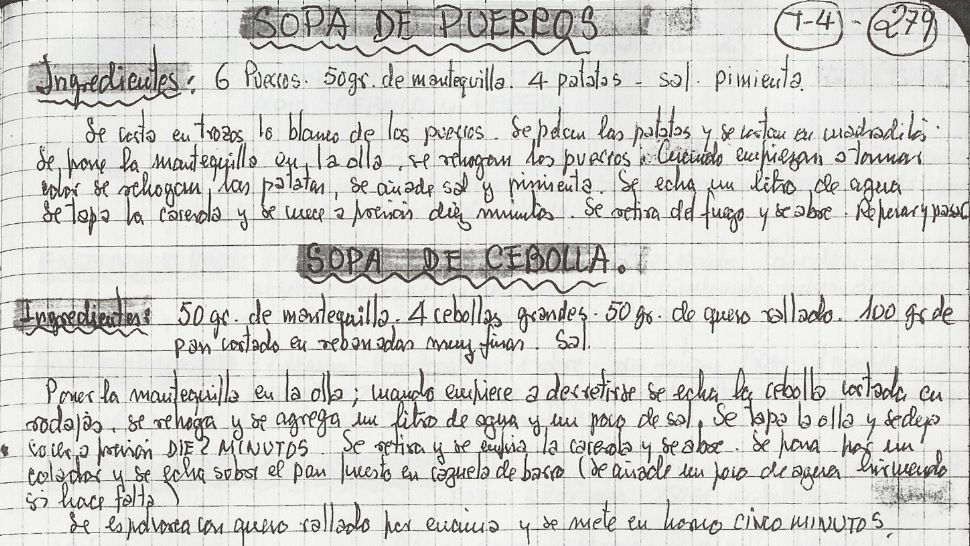 SOPA DE PUERROS T-4 - 279
Ingredientes: 6 Puerros. 50 gr. de mantequilla. 4 patatas - sal. pimienta.
Se corta en trozos lo blanco de los puerros. Se pelan las patatas y se cortan en cuadraditos.
Se pone la mantequilla en la olla, se rehogan los puerros. Cuando empiezan a tomar
color se rehogan las patatas, se añade sal y pimienta. Se echa un litro de agua
Se tapa la cacerola y se cuece a presión diez minutos. Se retira del fuego y se abre. Reposar y pasar
SOPA DE CEBOLLA.
Ingredientes: 50 gr. de mantequilla. 4 cebollas grandes. 50 gr. de queso rallado. 100 gr de
pan cortado en rebanadas muy finas. Sal.
Poner la mantequilla en la olla; cuando empiece a derretirse se echa la cebolla cortada en
rodajas. se rehoga y se agrega un litro de agua y un poco de sal. Se tapa la olla y se deja
cocer a presión DIEZ MINUTOS Se retira y se enfria la cacerola y se abre. Se pasa por un
colador y se echa sobre el pan puesto en cazuela de barro (se añade un poco de agua hirviendo
si hace falta)
Se espolvorea con queso rallado por encima y se mete en horno CINCO MINUTOS.